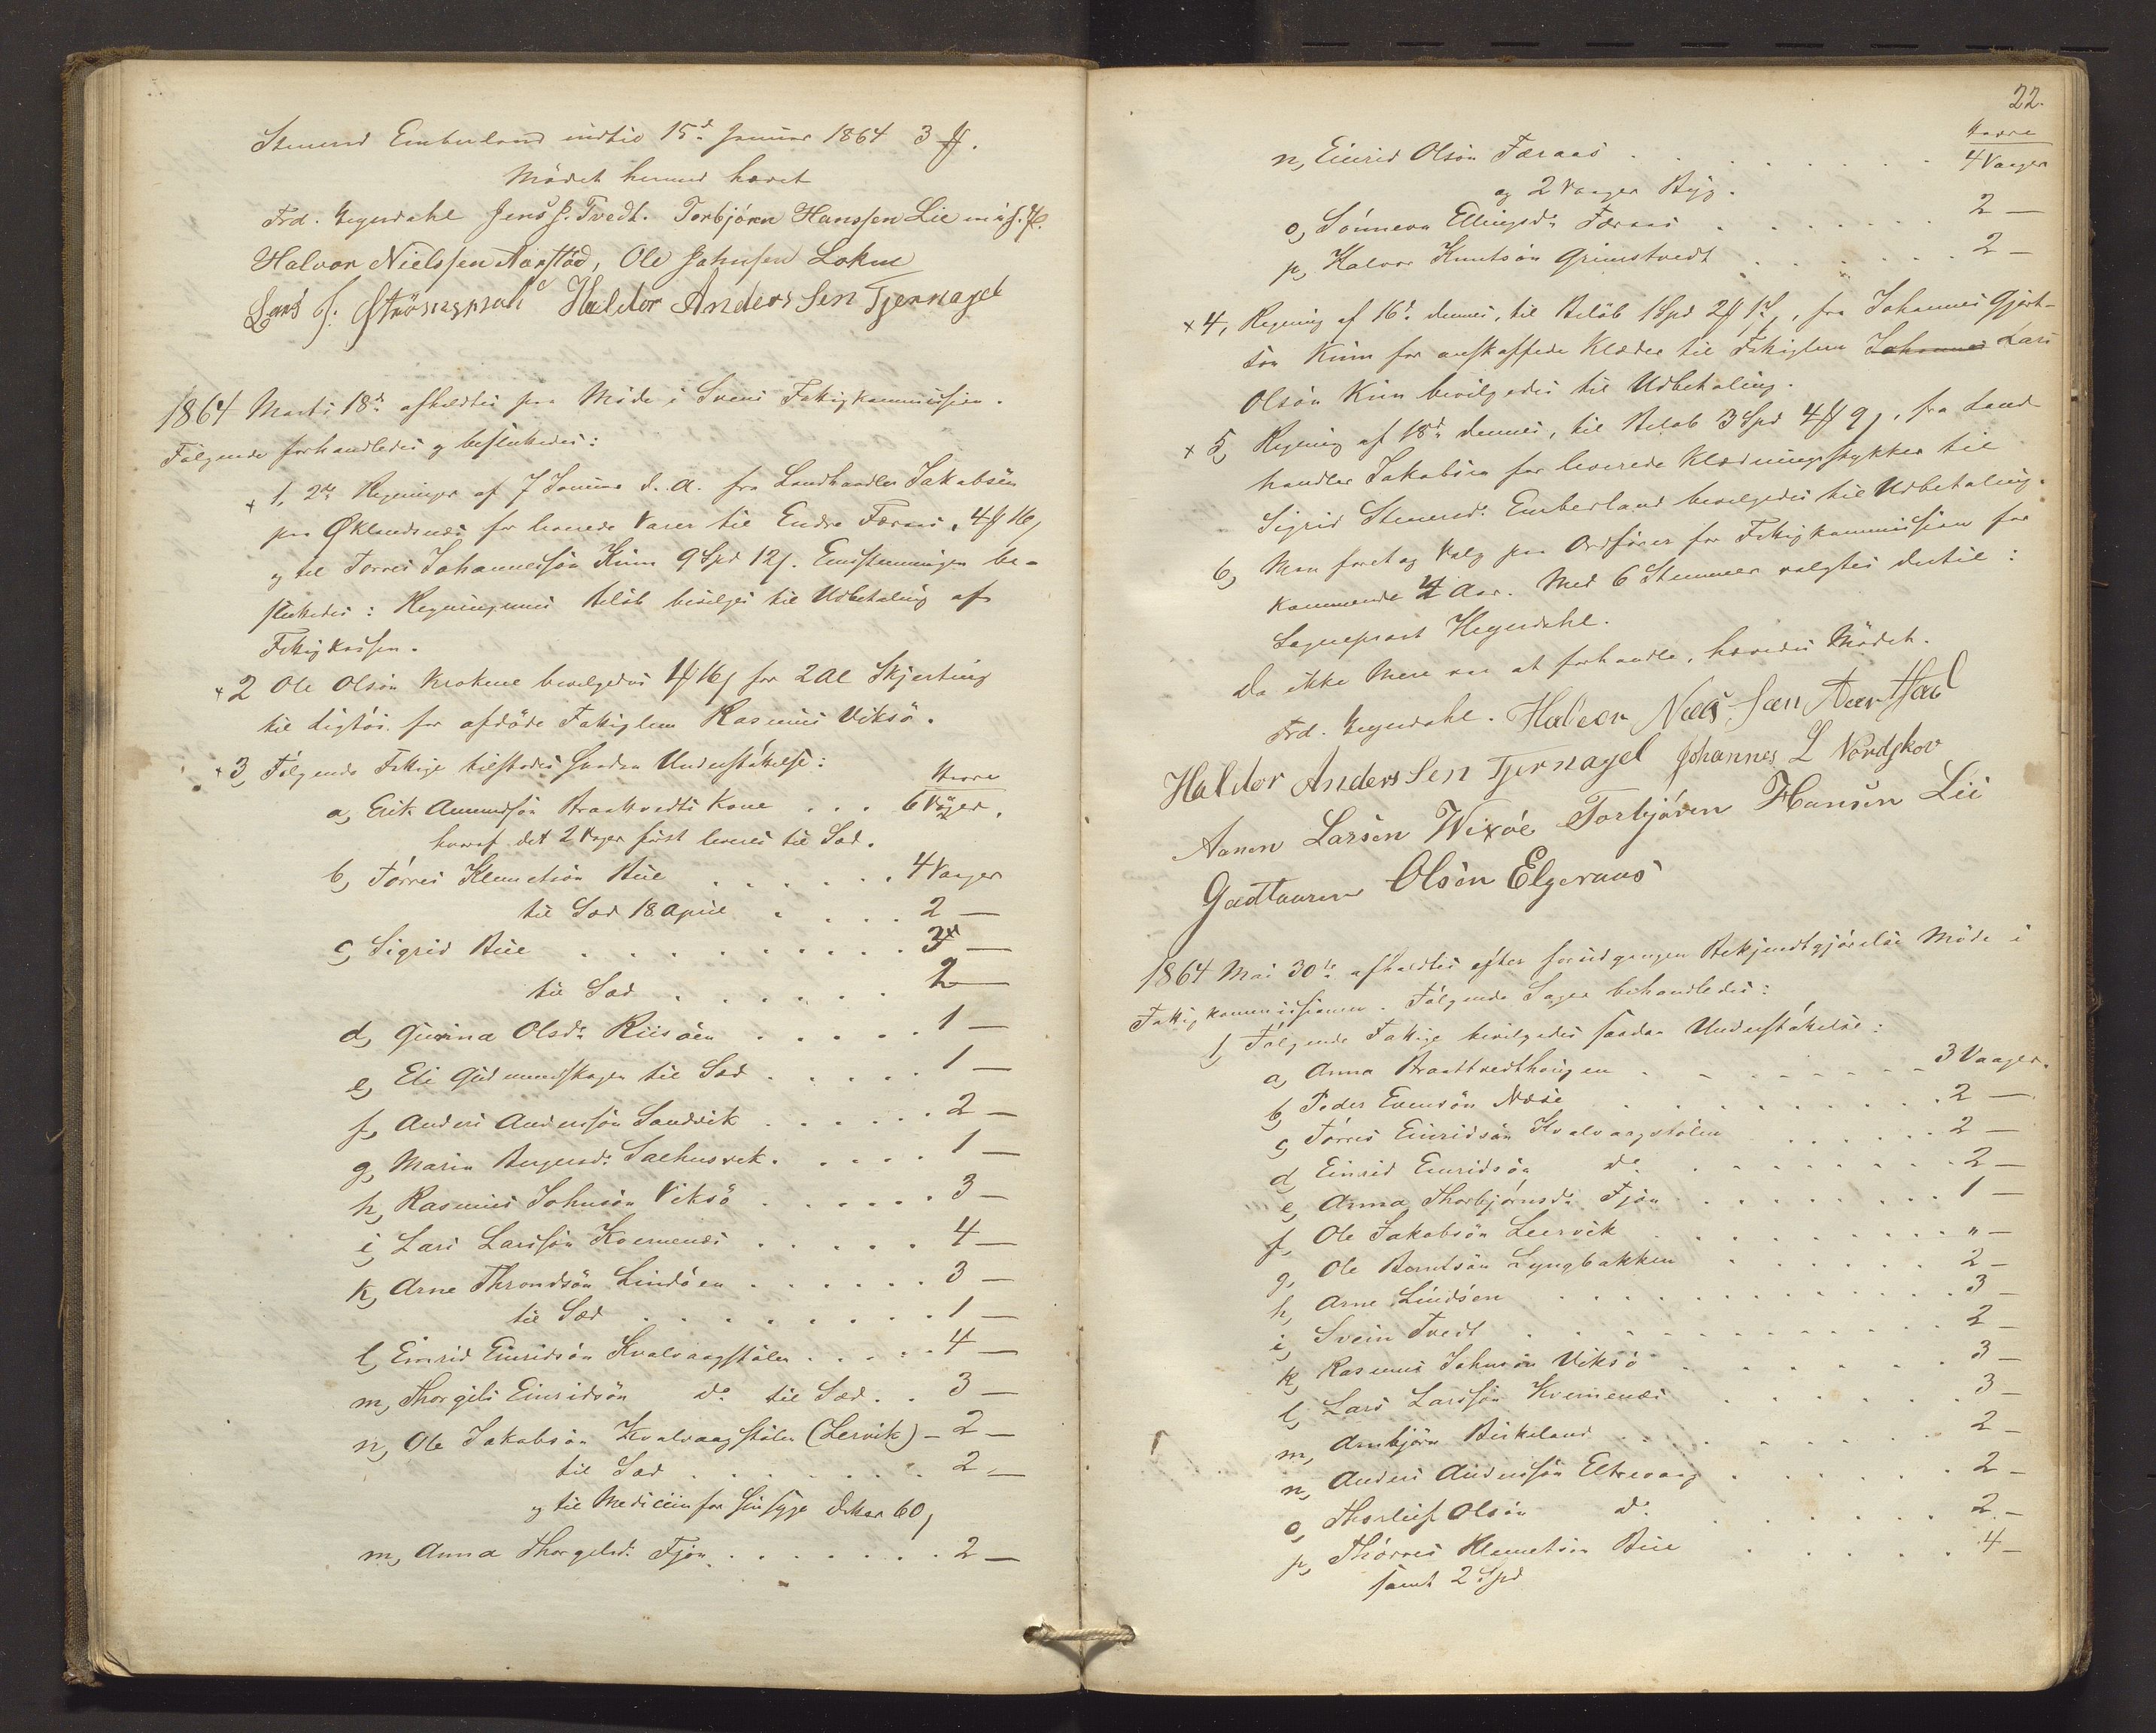 Stenerd Emberland indtil 15d. Januar 1864 3 ß.
Mödet hermed hævet
Frd. Hegerdahl Jens J. Tvedt. Torbjörn Hanssen Lie
Halvor Nielssen Aarstad, Ole Johnsen Lokne
Lars J. Haldor Anders Sen Tjernagel
1864 Marts 18de afholdtes paa Möde i Sveens Fattigkommission.
Følgende forhandledes og besluttedes:
x 1, 2de Regninger af 7 Januar d. A. fra Landhandler Jakobsön
paa Øklandsnæs for leverede Varer til Endre Færaas, 4 ß 16 s
og til Torres Johannessön Kinn 9 Spd 12 s. Enstemmigen be-
sluttedes: Regningernes Belöb bevilges til Udbetaling af
Fattigkassen.
x 2 Ole Olsön Krokene bevilgedes 4 ß 16 s for 2 Al Skjerting
til Ligtöi for afdöde Fattiglem Rasmus Viksö.
x 3, Følgende Fattige tilstodes saadan Understöttelse:
Havre
a, Erik Amundsön Braattvedts Kone . . . 6 Våger.
hvoraf det 2 Vager först leveres til Sæd.
b, Torres Klemetsön Bue . . . . . . 4 Vaager
til Sæd 18 April . . . . 2 —
c, Sigrid Bue . . . . . . . . . . 3 x —
til Sæd . . . . . . 2 —
d, Gurina Olsdr. Riisöen . . . . . 1 —
e, Eli Gudmundshagen til Sæd . . . . . 1 —
f, Anders Anderssön Sandvik . . . . . 2 —
g, Maria Bergesdr. Salhusvik . . . . . 1 —
h, Rasmus Johnsön Viksö . . . . . . 3 —
i, Lars Larssön Kvernenæs . . . . . . 4 —
k, Arne Throndsön Lindöen . . . . . . 3 —
til Sæd . . . . . . . . 1 —
l, Einrid Einridsön Kvalvaagstölen . . . . . 4 —
m, Thorgils Einridsön do. til Sæd . . 3 —
n, Ole Jakobsön Kvalvaagstölen (Lervik) - 2 —
til Sæd . . . . . . . . 2 —
og til Medicin for Sinsyge Datter 60 s
m, Anna Thorgilsdr. Fjon . . . . . . . 2 —
22.
Havre
n, Einrid Olsön Færaas . . . . . . . . . 4 Vaager
og 2 Vaager Byg.
o, Sönneva Ellingsdr. Færaas . . . . . . 2 —
p, Halvor Knutsön Grimstvedt . . . . . . 2 —
x 4, Regning af 16d. dennes, til Belöb 1 Spd 2 ß 1 s, fra Johannes Gjert-
sön Kinn for anskaffede Klæder til Fattiglem Johannes Lars
Olsön Kinn bevilgedes til Udbetaling.
x 5, Regning af 18d. dennes, til Belöb 3 Spd 4 ß 9 s, fra Land-
handler Jakobsen for leverede Klædningsstykker til
Sigrid Stenersdr. Emberland bevilgedes til Udbetaling.
6, Man foretog Valg paa Ordförer for Fattigkommissionen for
kommende 4 Aar. Med 6 Stemmer valgtes dertil:
Sogneprest Hegerdahl.
Da ikke Mere var at forhandle, hævedes Mödet.
Frd. Hegerdahl. Halvor Niels Sen Aarstad
Haldor Anders Sen Tjernagel Johannes L Nordskov
Aanen Larsen Wixöe Torbjören Hansen Lii
Godtaaren Olsen Elgeraas
1864 Mai 30te afholdtes efter forudgangen Bekjendtgjörelse Möde i
Fattigkommissionen. Følgende Sager behandledes:
1, Følgende Fattige bevilgedes saadan Understöttelse:
a, Anna Braattvedthaugen . . . . . . . . 3 Vaager.
b, Peder Evensön Næse . . . . . . . . . 2 —
c, Törres Einridsön Kvalvaagstölen . . . . . . 2 —
d, Einrid Einridsön do. . . . . . . . . . 2 —
e, Anna Thorbjörnsdr. Fjon . . . . . . . . 1 —
f, Ole Jakobsön Leervik . . . . . . . . . " —
g, Ole Berntsön Lyngbakken . . . . . . . 2 —
h, Arne Lindöen . . . . . . . . . . . . 3 —
i, Svein Tvedt . . . . . . . . . . . . 2 —
k, Rasmus Johnsön Viksö . . . . . . . 3 —
l, Lars Larssön Kvernenæs . . . . . . 3 —
m, Arnbjörn Birkeland . . . . . . . . . 2 —
n, Anders Anderssön Eltravaag . . . . . . 2 —
o, Thorleif Olsön do. . . . . . . . . 2 —
p, Thörres Klemetsön Bue . . . . . 4 —
samt 2 Spd